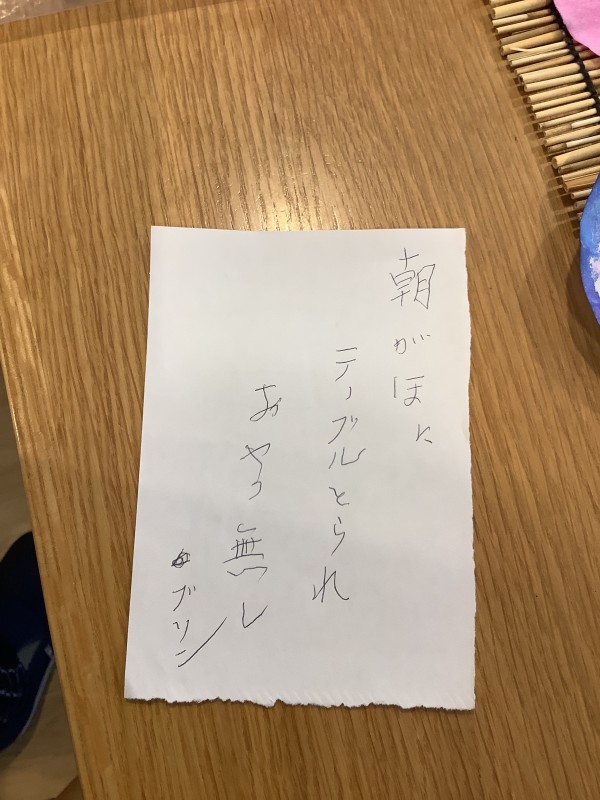 朝がほに
テーブルとられ
おやつ無し
ブリン